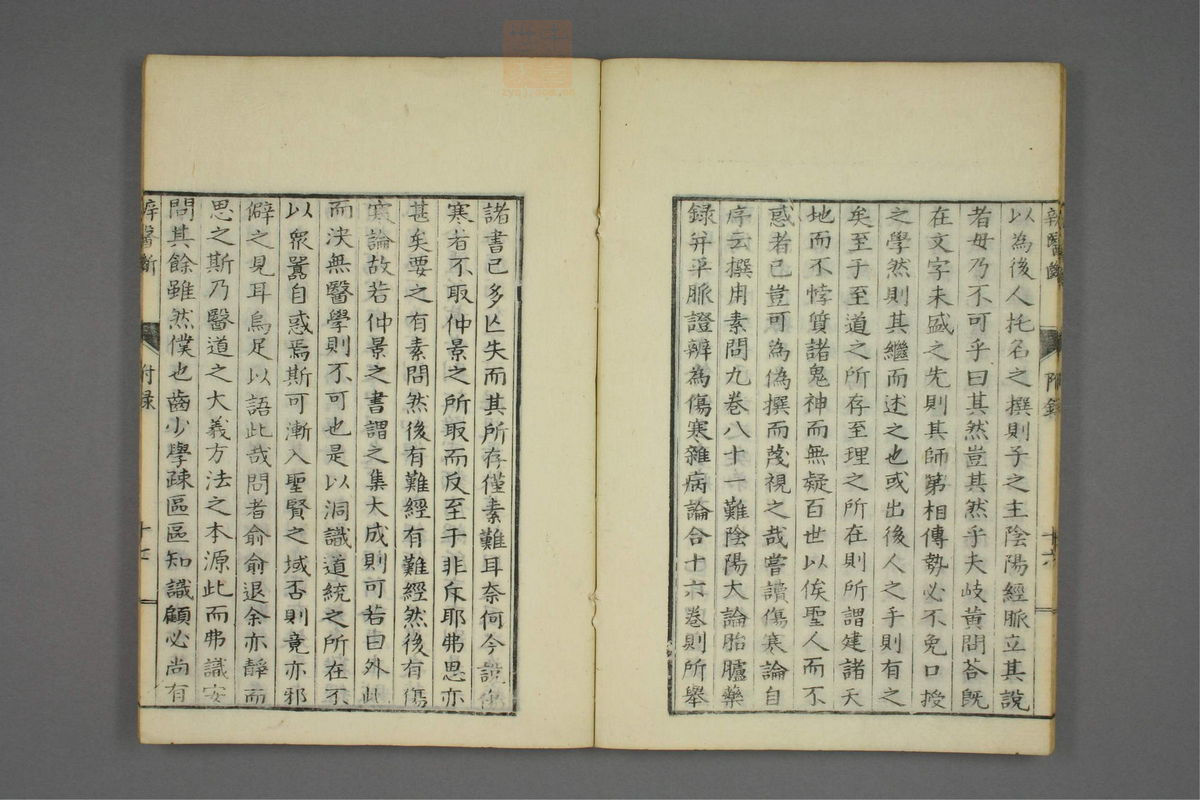 以為後人托名之撰則子之主陰陽經脈立其說
者毋乃不可乎曰其然豈其然乎夫岐黃問荅既
在文字未盛之先則其師第相傳勢必不免口授
之學然則其繼而述之也或出後人之手則有之
矣至于至道之所存至理之所在則所謂建諸天
地而不悖質諸鬼神而無疑百世以俟聖人而不
惑者已豈可為偽撰而蔑視之哉嘗讀傷寒論自
序云撰用素問九卷八十一難陰陽大論胎臚藥
錄并平脈證辨為傷寒雜病論合十六卷則所舉
諸書已多亾失而其所存僅素難耳奈何今說傷
寒者不取仲景之所取而反至于非斥耶弗思亦
甚矣要之有素問然後有難經有難經然後有傷
寒論故若仲景之書謂之集大成則可若曰外此
而決無醫學則不可也是以洞識道統之所在不
以眾嚣自惑焉斯可漸入聖賢之域否則竟亦邪
僻之見耳烏足以語此哉問者俞俞退余亦靜而
思之斯乃醫道之大義方法之本源此而弗識安
問其餘雖然僕也齒少學疎區區知識顧必尚有
斥醫斷
附錄
十七